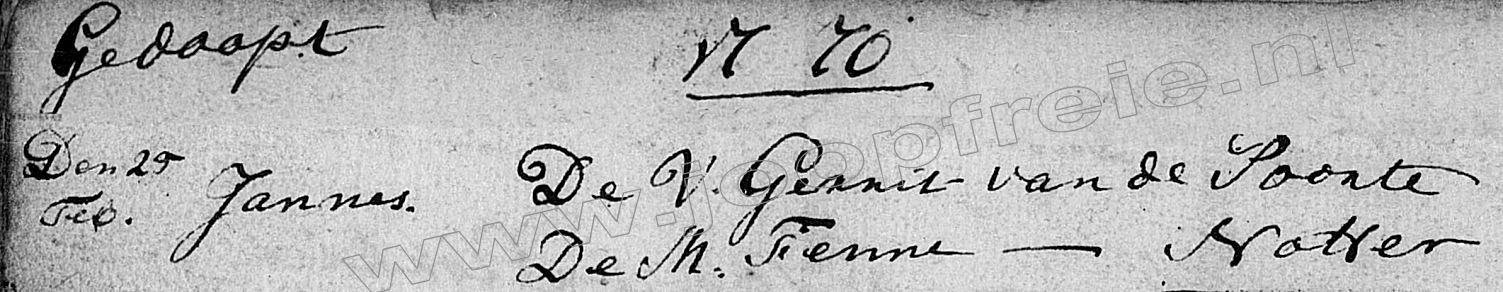 Gedoopt 1770
Den 25 Jannes. De V. Gerrit van de Poorte
Feb. De M. Fenne — Notter
www.joopfreie.nl